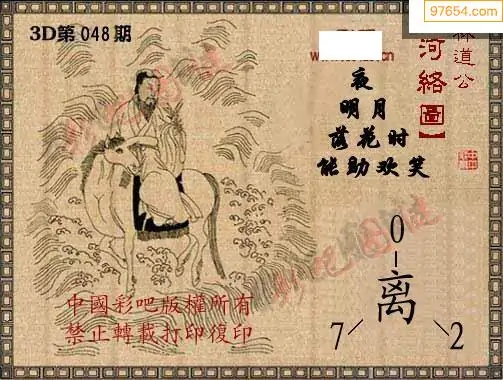 97654.com
3D第048期
.cn
林道公
河络圖】
夜
明月
落花时
能助欢笑
0
离
7
2
中國彩吧版權所有
禁止轉載打印復印